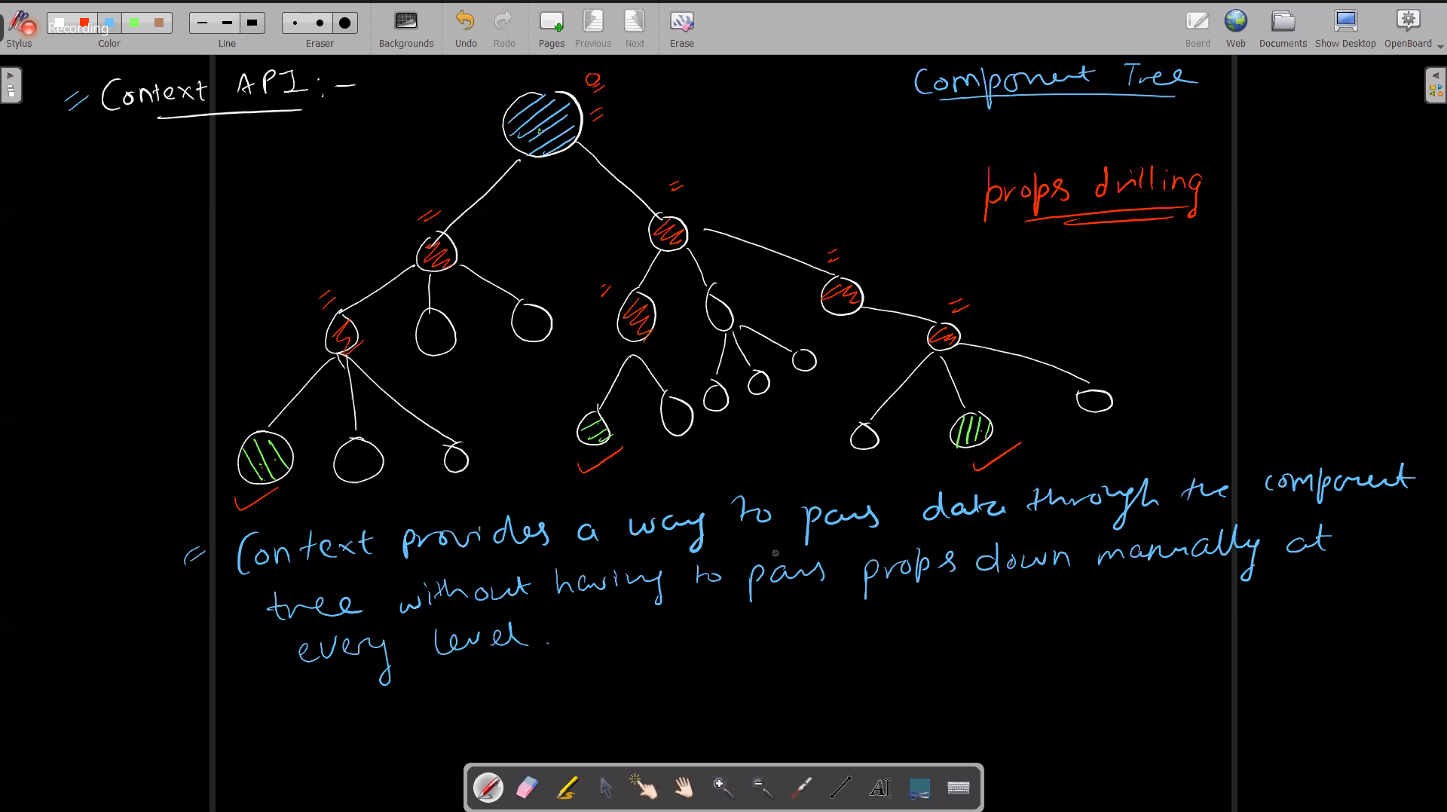 Recording
Stylus
Color
Line
Eraser
Backgrounds
Undo
Redo
Pages
Previous
Next
Erase
Board
Web
Documents
Show Desktop
OpenBoard
= Context API :-
Component Tree
props drilling
= Context provides a way to pass data through the component
tree without having to pass props down manually at
every level.